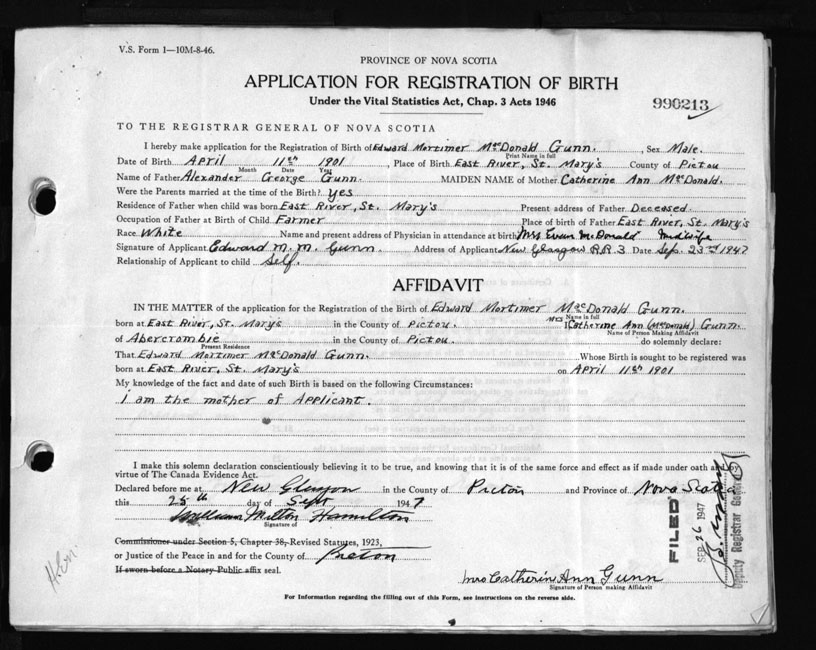 V.S. Form 1—10M-8-46.
PROVINCE OF NOVA SCOTIA
APPLICATION FOR REGISTRATION OF BIRTH
Under the Vital Statistics Act, Chap. 3 Acts 1946
990213
TO THE REGISTRAR GENERAL OF NOVA SCOTIA
I hereby make application for the Registration of Birth of Edward Mortimer MacDonald Gunn. , Sex Male.
Print Name in full
Date of Birth April 11th 1901 , Place of Birth East River, St. Mary's County of Pictou
Month Date Year
Name of Father Alexander George Gunn. MAIDEN NAME of Mother Catherine Ann MacDonald.
Were the Parents married at the time of the Birth? yes
Residence of Father when child was born East River, St. Mary's Present address of Father Deceased
Occupation of Father at Birth of Child Farmer Place of birth of Father East River, St. Mary's
Race White Name and present address of Physician in attendance at birth Mrs Evan McDonald Midwife
Signature of Applicant Edward M. M. Gunn. Address of Applicant New Glasgow R.R. 3 Date Sep. 23rd 1947
Relationship of Applicant to child Self.
AFFIDAVIT
IN THE MATTER of the application for the Registration of the Birth of Edward Mortimer MacDonald Gunn.
Name in full
born at East River, St. Mary's in the County of Pictou. I Mrs Catherine Ann (McDonald) Gunn.
Name of Person Making Affidavit
of Abercrombie in the County of Pictou. do solemnly declare:
Present Residence
That Edward Mortimer MacDonald Gunn. Whose Birth is sought to be registered was
born at East River, St. Mary's on April 11th 1901
My knowledge of the fact and date of such Birth is based on the following Circumstances:
I am the mother of Applicant.
I make this solemn declaration conscientiously believing it to be true, and knowing that it is of the same force and effect as if made under oath and by
virtue of The Canada Evidence Act.
Declared before me at New Glasgow in the County of Pictou and Province of Nova Scotia
this 25th day of Sept 1947
William Milton Hamilton
Signature of
Commissioner under Section 5, Chapter 38, Revised Statutes, 1923,
or Justice of the Peace in and for the County of Pictou
If sworn before a Notary Public affix seal.
Mrs Catherin Ann Gunn
Signature of Person making Affidavit
For Information regarding the filling out of this Form, see instructions on the reverse side.
FILED
SEP 26 1947
Deputy Registrar General